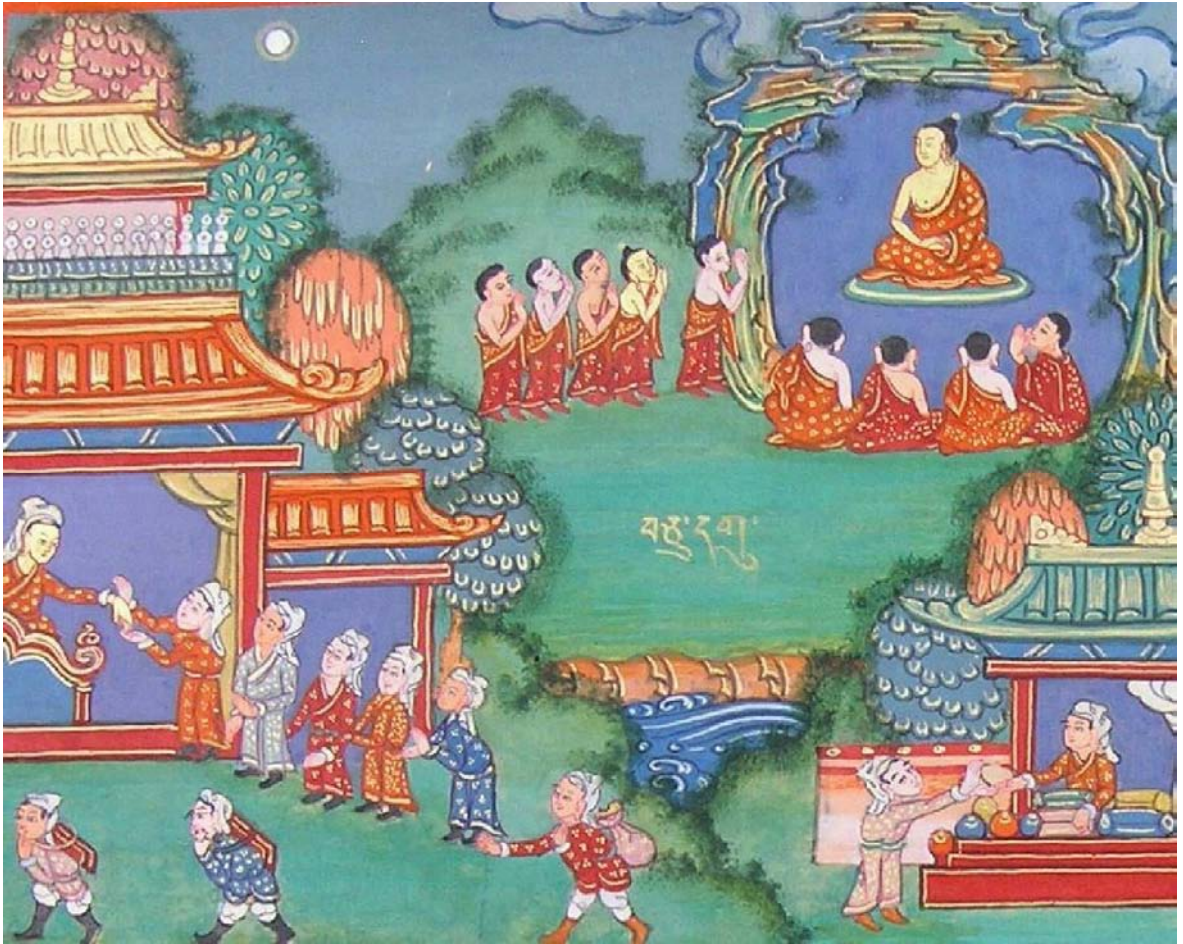 བཅུ་དགུ་